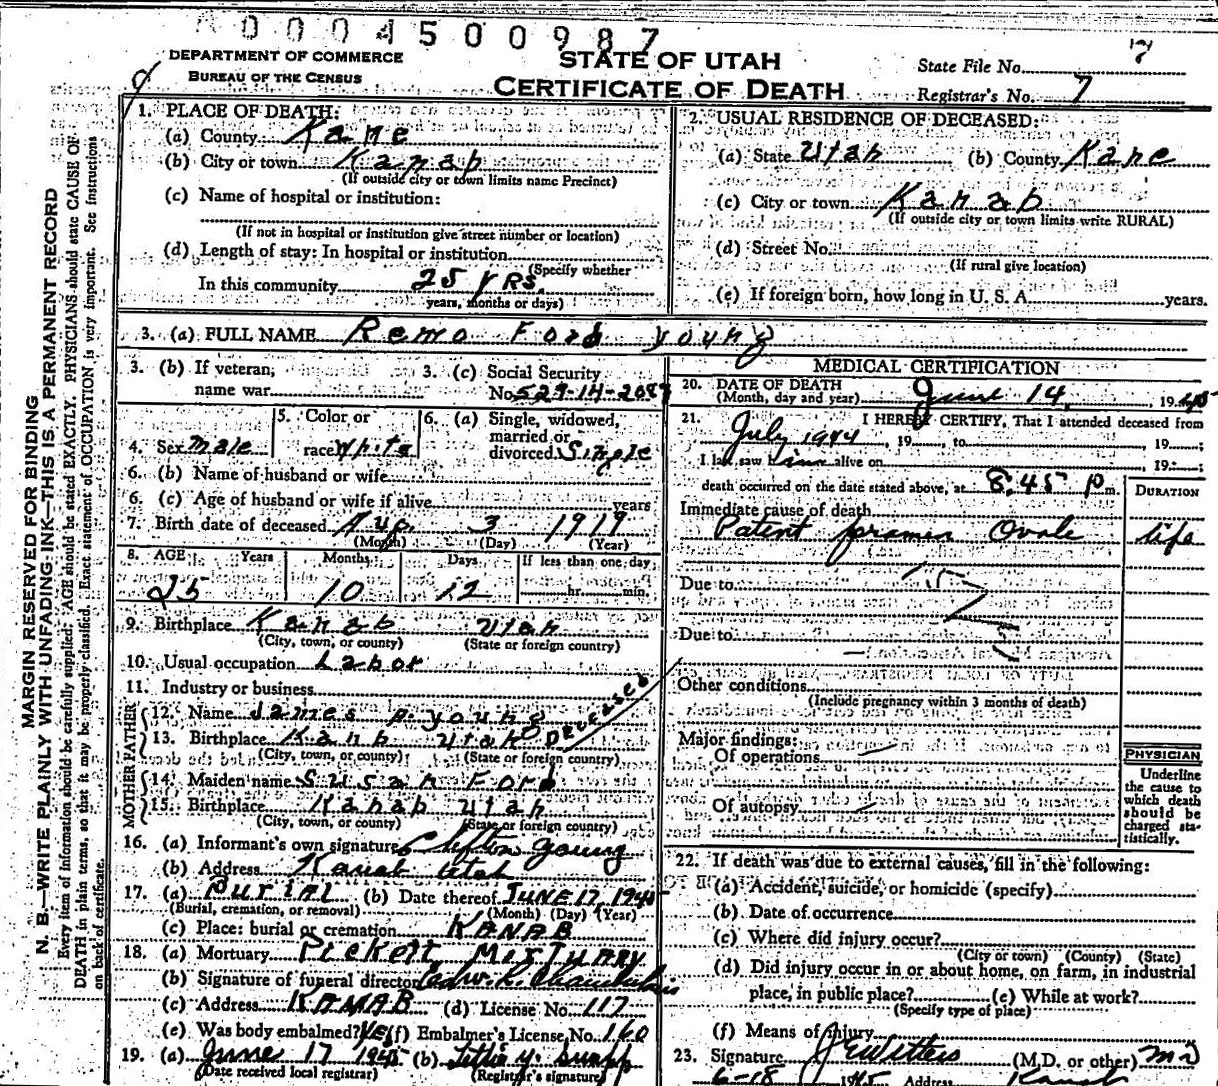 0004500987
DEPARTMENT OF COMMERCE
BUREAU OF THE CENSUS
STATE OF UTAH
CERTIFICATE OF DEATH
State File No. 7
Registrar's No. 7
MARGIN RESERVED FOR BINDING
N. B.—WRITE PLAINLY WITH UNFADING INK—THIS IS A PERMANENT RECORD
Every item of information should be carefully supplied; AGE should be stated EXACTLY. PHYSICIANS should state CAUSE OF
DEATH in plain terms, so that it may be properly classified. Exact statement of OCCUPATION is very important. See Instructions
on back of certificate.
1. PLACE OF DEATH:
(a) County Kane
(b) City or town Kanab
(If outside city or town limits name Precinct)
(c) Name of hospital or institution:
(If not in hospital or institution give street number or location)
(d) Length of stay: In hospital or institution
(Specify whether
In this community 25 yrs.
years, months or days)
2. USUAL RESIDENCE OF DECEASED:
(a) State Utah (b) County Kane
(c) City or town Kanab
(If outside city or town limits write RURAL)
(d) Street No.
(If rural give location)
(e) If foreign born, how long in U. S. A. years.
3. (a) FULL NAME Remo Ford Young
3. (b) If veteran,
name war
3. (c) Social Security
No. 529-14-2089
4. Sex male
5. Color or
race white
6. (a) Single, widowed,
married or
divorced Single
6. (b) Name of husband or wife
6. (c) Age of husband or wife if alive years
7. Birth date of deceased Aug. 3 1919
(Month) (Day) (Year)
8. AGE Years Months Days If less than one day
25 10 12 hr. min.
9. Birthplace Kanab Utah
(City, town, or county) (State or foreign country)
10. Usual occupation Labor
11. Industry or business
FATHER
12. Name James P. Young
13. Birthplace Kanab Utah Deceased
(City, town, or county) (State or foreign country)
MOTHER
14. Maiden name Susan Ford
15. Birthplace Kanab Utah
(City, town, or county) (State or foreign country)
16. (a) Informant's own signature Clifton Young
(b) Address Kanab Utah
17. (a) Burial (b) Date thereof JUNE 17 1945
(Burial, cremation, or removal) (Month) (Day) (Year)
(c) Place: burial or cremation KANAB
18. (a) Mortuary Pickett Mortuary
(b) Signature of funeral director
(c) Address KANAB (d) License No. 117
(e) Was body embalmed? Yes (f) Embalmer's License No. 160
19. (a) June 17 1945 (b)
(Date received local registrar) (Registrar's signature)
MEDICAL CERTIFICATION
20. DATE OF DEATH
(Month, day and year) June 14, 1945
21. I HEREBY CERTIFY, That I attended deceased from
July 1944, 19 , to , 19 ;
I last saw him alive on , 19 ;
death occurred on the date stated above, at 8:45 p m.
DURATION
Immediate cause of death
Patent foramen Ovale life
Due to
Due to
Other conditions
(Include pregnancy within 3 months of death)
Major findings:
Of operations
Of autopsy
PHYSICIAN
Underline
the cause to
which death
should be
charged sta-
tistically.
22. If death was due to external causes, fill in the following:
(a) Accident, suicide, or homicide (specify)
(b) Date of occurrence
(c) Where did injury occur?
(City or town) (County) (State)
(d) Did injury occur in or about home, on farm, in industrial
place, in public place? (e) While at work?
(Specify type of place)
(f) Means of injury
23. Signature (M.D. or other) MD
6-18 1945 Address Kanab